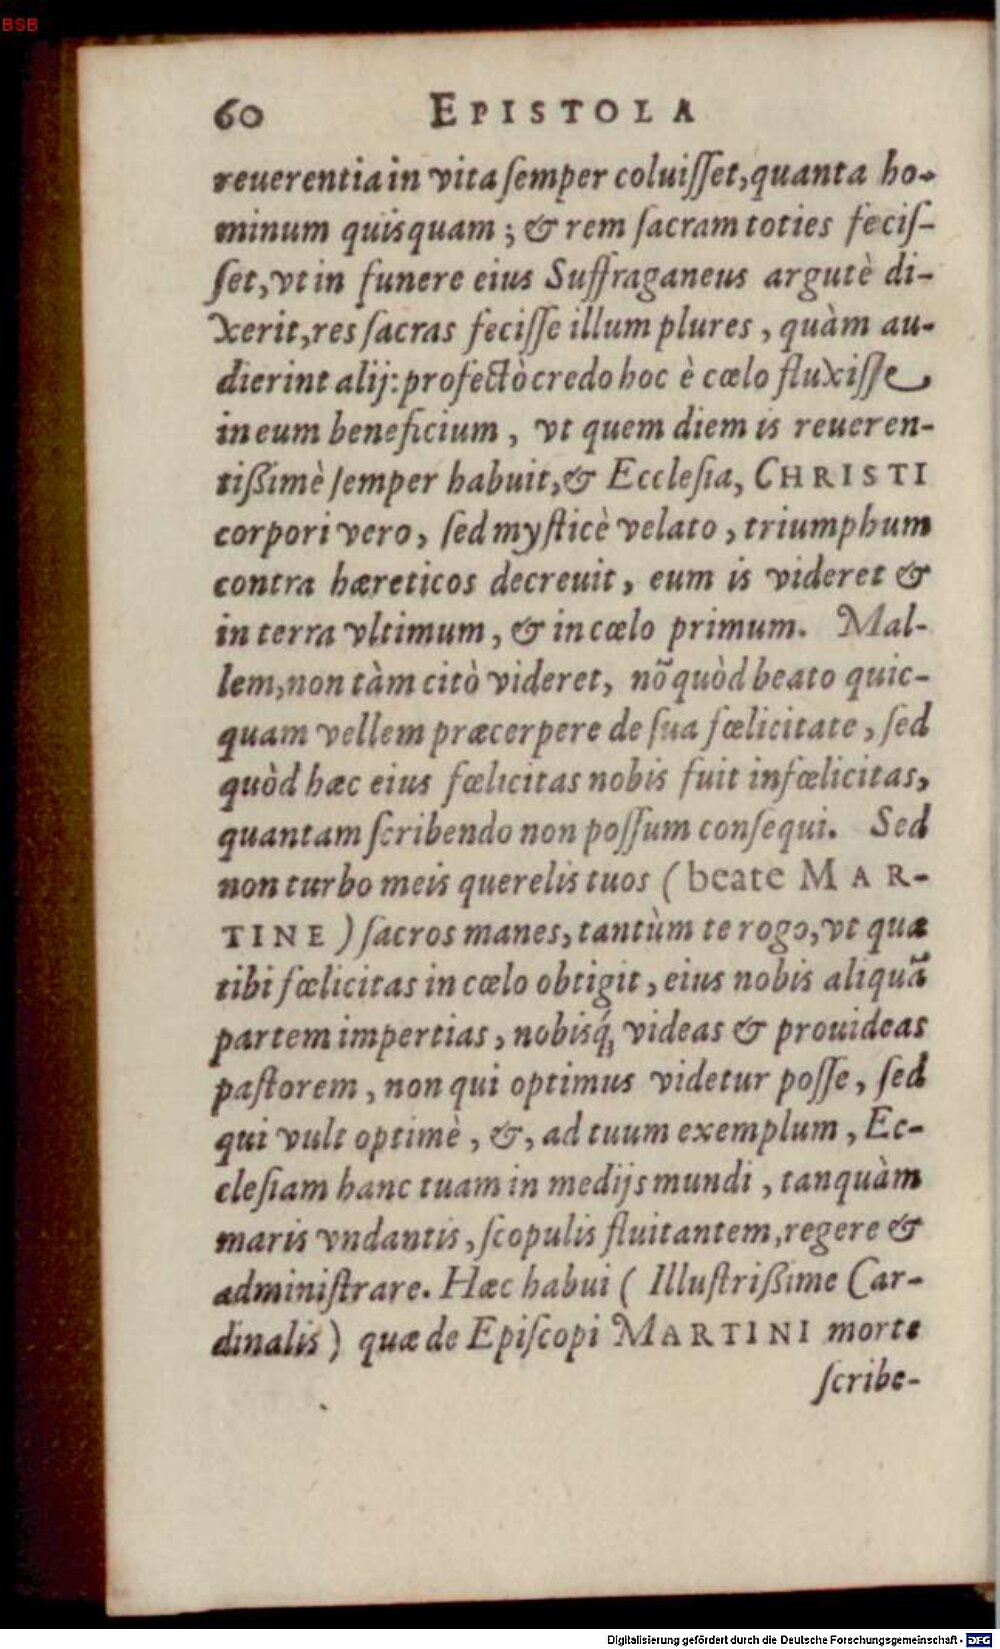 BSB
60 EPISTOLA
reuerentia in vita ſemper coluiſſet, quanta ho-
minum quisquam; & rem ſacram toties feciſ-
ſet, vt in funere eius Suffraganeus argutè di-
xerit, res ſacras feciſſe illum plures, quàm au-
dierint alij: profectò credo hoc è cœlo fluxiſſe
in eum beneficium, vt quem diem is reueren-
tißimè ſemper habuit, & Eccleſia, CHRISTI
corpori vero, ſed myſticè velato, triumphum
contra hæreticos decreuit, eum is videret &
in terra vltimum, & in cœlo primum. Mal-
lem, non tàm citò videret, nõ quòd beato quic-
quam vellem præcerpere de ſua fœlicitate, ſed
quòd hæc eius fœlicitas nobis fuit infœlicitas,
quantam ſcribendo non poſſum conſequi. Sed
non turbo meis querelis tuos (beate MAR-
TINE) ſacros manes, tantùm te rogo, vt quæ
tibi fœlicitas in cœlo obtigit, eius nobis aliquã
partem impertias, nobisq́; videas & prouideas
paſtorem, non qui optimus videtur poſſe, ſed
qui vult optimè, &, ad tuum exemplum, Ec-
cleſiam hanc tuam in medijs mundi, tanquàm
maris vndantis, ſcopulis fluitantem, regere &
adminiſtrare. Hæc habui (Illuſtrißime Car-
dinalis) quæ de Epiſcopi MARTINI morte
ſcribe-
Digitalisierung gefördert durch die Deutsche Forschungsgemeinschaft - DFG